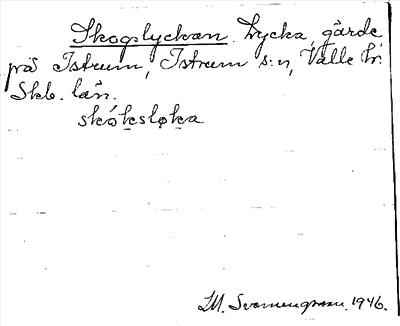 Skogslyckan. Lycka, gärde
på Istrum, Istrum s:n, Valle hr.
Skb. län.
skóksløka
M. Svenungsson. 1946.